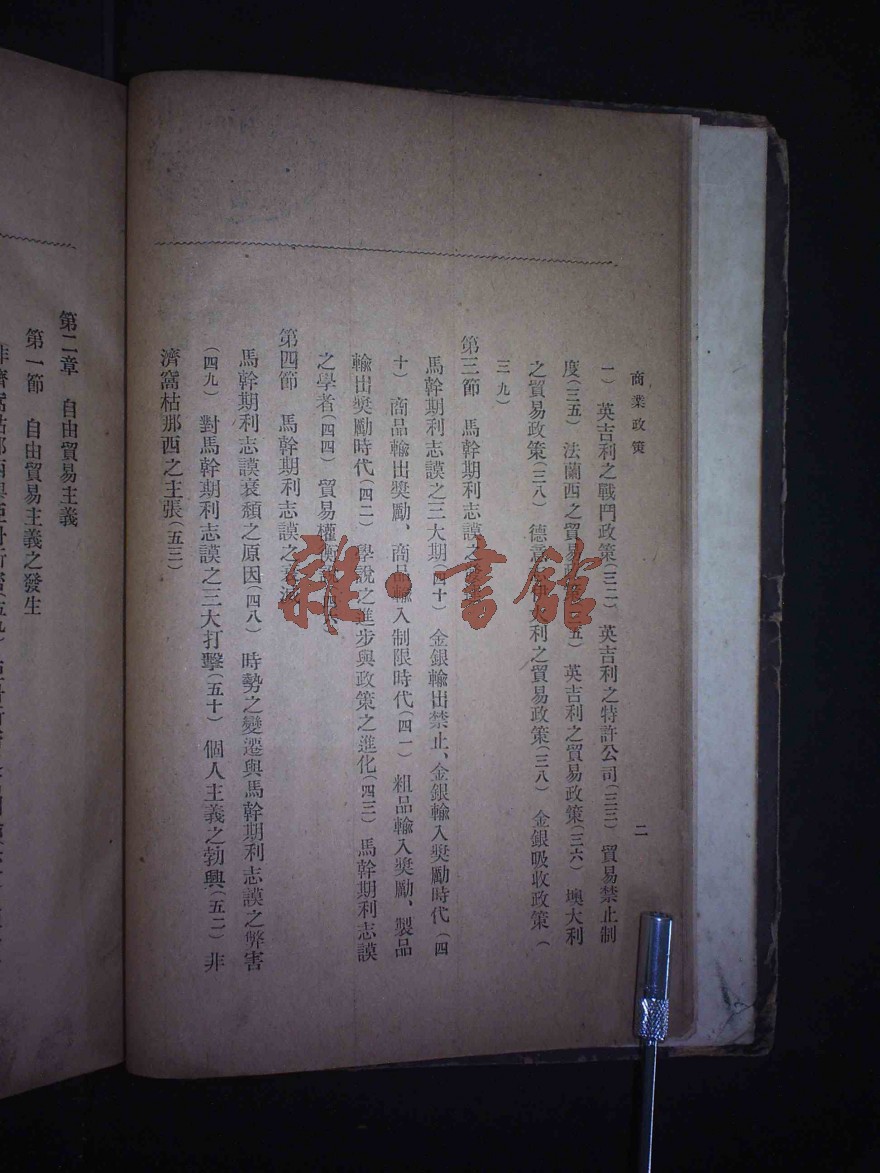 商業政策
二
一) 英吉利之戰鬥政策(三二) 英吉利之特許公司(三三) 貿易禁止制
度(三五) 法蘭西之貿易政 五) 英吉利之貿易政策(三六) 墺大利
之貿易政策(三八) 德意 伊大利之貿易政策(三八) 金銀吸收政策(
三九)
第三節 馬幹期利志謨之
馬幹期利志謨之三大期(四十) 金銀輸出禁止、金銀輸入獎勵時代(四
十) 商品輸出獎勵、商品輸入制限時代(四一) 粗品輸入獎勵、製品
輸出獎勵時代(四二) 學說之進步與政策之進化(四三) 馬幹期利志謨
之學者(四四) 貿易權衡
第四節 馬幹期利志謨之
馬幹期利志謨衰頹之原因(四八) 時勢之變遷與馬幹期利志謨之弊害
(四九) 對馬幹期利志謨之三大打擊(五十) 個人主義之勃興(五二) 非
濟窩枯那西之主張(五三)
第二章 自由貿易主義
第一節 自由貿易主義之發生
雜·書館